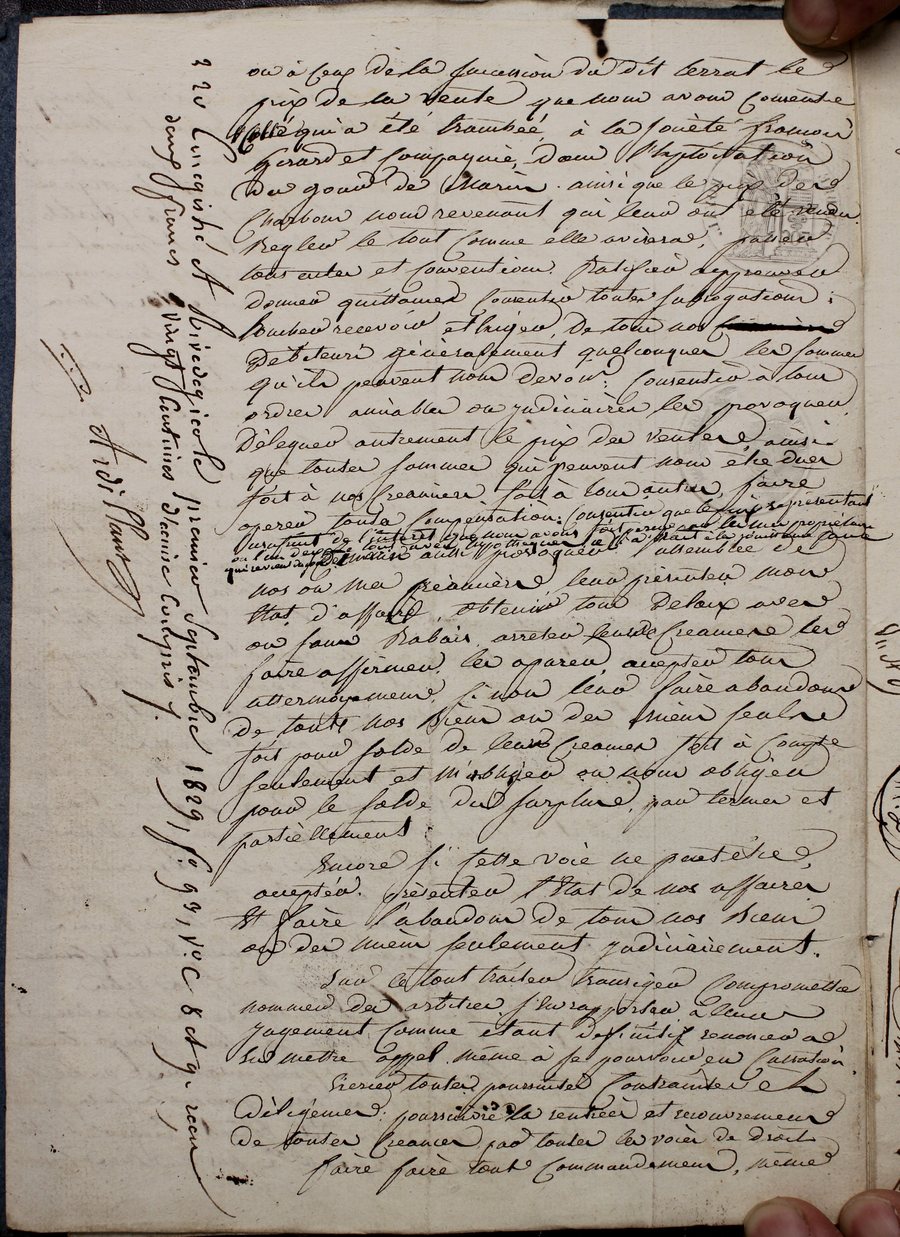 ou à ceux de la succession du dit terrat le
prix de la vente que nous avons consentie
qui a été tombée à la société françois
Girard et Compagnie, dans l'Exploitation
du gour de Marin ainsi que le prix des
Charbons nous revenant qui leur ont été vendu
Regler le tout comme elle avisera, passer
tous actes et conventions. Ratifier approuver
donner quittances consentir toutes subrogations ;
toucher recevoir et Exiger, De tous nos
Debiteurs généralement quelconques les sommes
qu'ils peuvent nous devoir : Consentir à tous
ordres amiables ou judiciaires les provoquer,
Déleguer autrement le prix des ventes ainsi
que toutes sommes qui peuvent nous être dues
soit à nos Creanciers soit à tous autres, faire
operer toutes Compensations. Consentir que le prix représentant
de l'interet que nous avons
provoquer l'assemblée de
nos ou mes Créanciers, leur présenter mon
Etat d'affaires, obtenir tous Delaix avec
ou sans Rabais, arreter leurs Creances les
faire affirmer, les operer, accepter tous
attermoyements, si non leur faire abandon
de tous nos Biens ou des miens seuls
soit pour solde de leurs Creances soit à Compte
seulement et m'obliger ou nous obliger
pour le solde du surplus, par termes et
partiellement.
Encore si cette voie ne peut être
acceptée. présenter l'Etat de nos affaires
Et faire l'abandon de tous nos Biens
ou des miens seulement judiciairement.
Sur le tout traiter transiger compromettre
nommer des arbitres s'en rapporter à leur
jugement comme étant définitif renoncer à
En mettre appel même à se pourvoir en Cassation
Exercer toutes poursuites Contraintes et
diligences. poursuivre la rentrée et recouvrement
de toutes Creances par toutes les voies de droit
faire faire tous Commandements, même
220 Enregistré A Rivedegier le premier Septembre 1829, fo. 93, Vo. C 8 et 9. reçu
deux francs vingt Centimes dixme Compris.